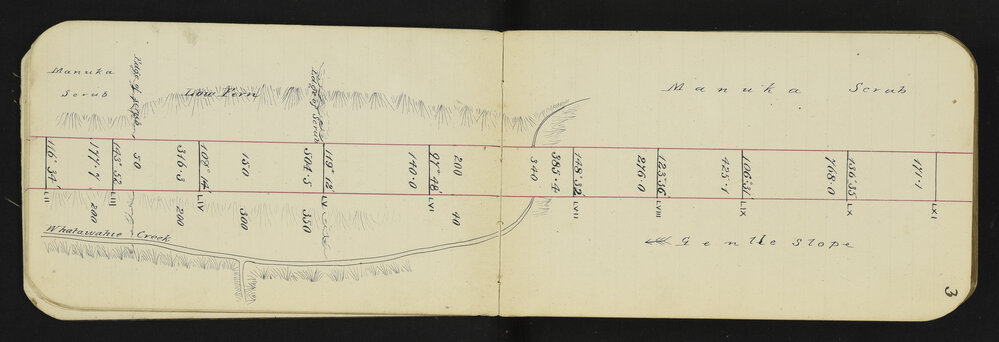 Manuka
Scrub
Low Fern
Edge of Scrub
Manuka Scrub
116° 34'
177·7
143° 52'
50
316·3
109° 14'
150
304·5
119° 12'
140·0
97° 48'
200
385·4
340
148° 32'
276·0
123° 56'
425·1
106° 31'
768·0
171·1
LII
200
LIII
200
LIV
300
LV
350
LVI
40
LVII
LVIII
LIX
LX
LXI
Whatawahie Creek
Gentle Slope
3